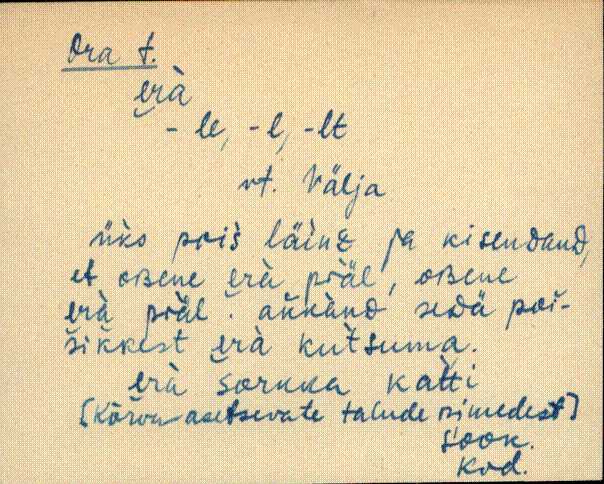 Ora t.
erà
- le, -l, -lt
vt. Välja
üks pois läinᴢ ja kisendand,
et oʙene erà präl, oʙene
erà präl. aǹkànᴅ sedä poi-
šikkest erà kutsuma.
erà šorkka katti
[Kõrvu asetsevate talude nimedest]
Sook.
Kod.